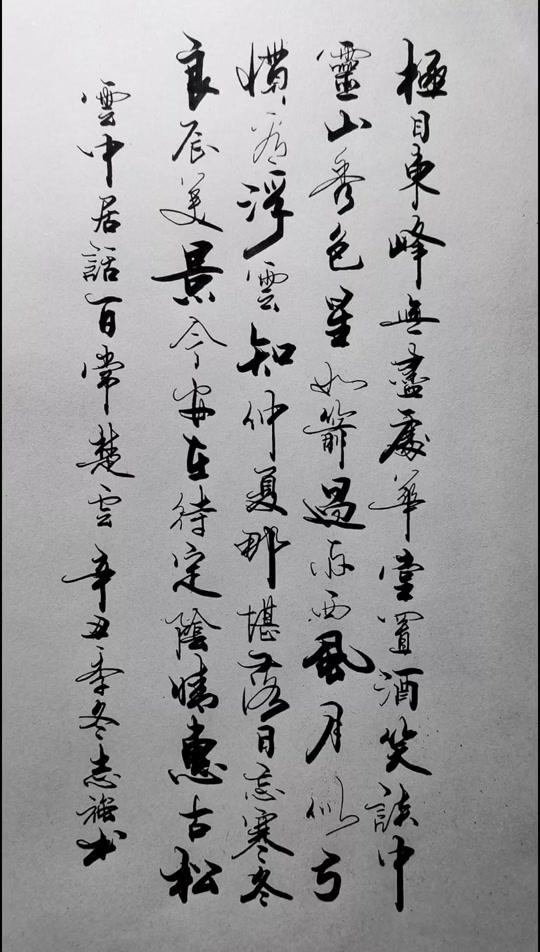 極目東峰無盡處華堂置酒笑談中
靈山秀色星如箭過雨西風月似弓
慣看浮雲知仲夏那堪落日忘寒冬
良辰美景今安在待定陰晴惠古松
雲中居話百常楚雲 辛丑季冬志強书